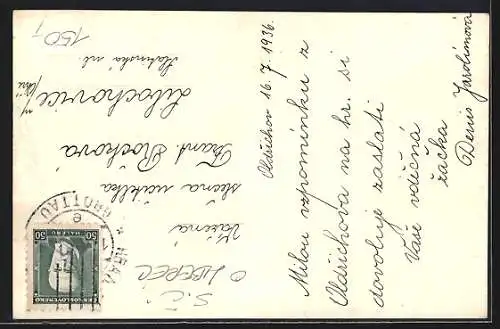 Oldřichov 16. 7. 1936.
Milou vzpomínku z
Oldřichova na hr. si
dovoluje zaslati
Vaše vděčná
žačka
Denis Jarolímová
Vážená
slečna učitelka
Frant. Rőčková
Libochovice
n/Ohří
150,-
S.Č.
O LIBEREC
GROTTAU
HRAD
50 HALÉŘŮ 50
ČESKOSLOVENSKO